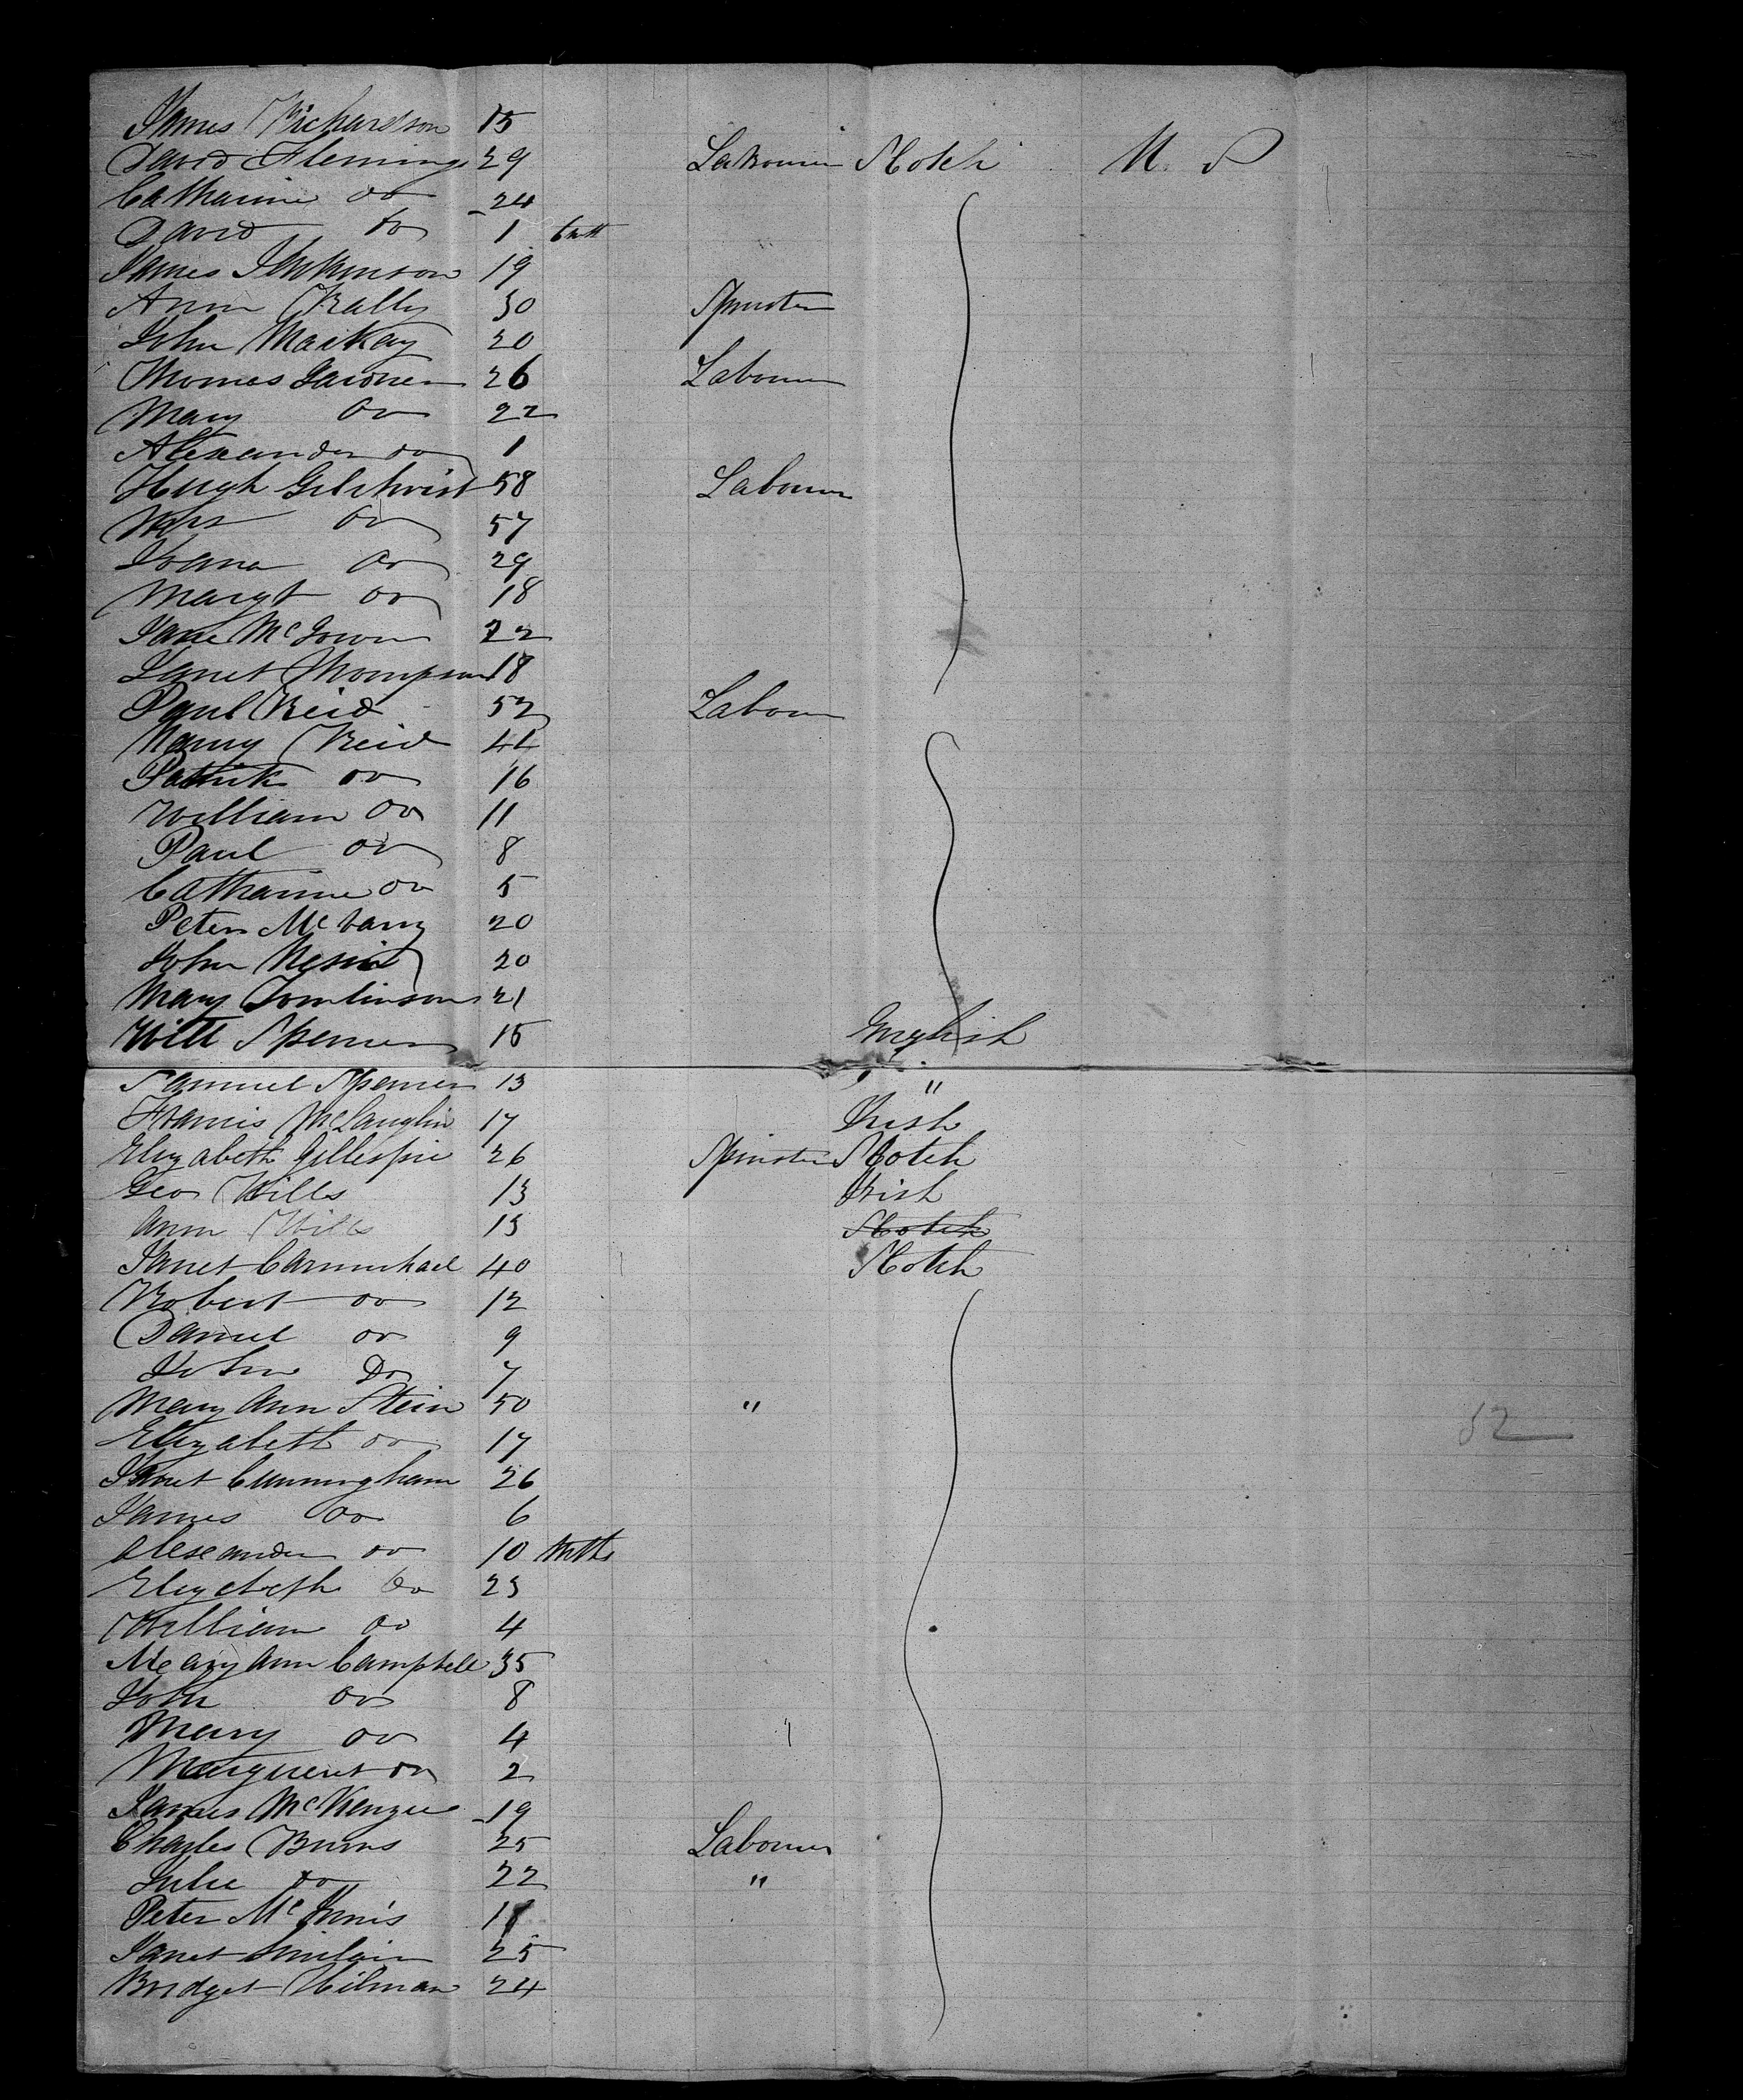 James Richardson 15
David Fleming 29 Labourer Scotch U. S
Catharine do 24
David do 1 mth
James Jenkinson 19
Ann Rally 30 Spinster
John MacKay 20
Thomas Gardner 26 Labourer
Mary do 22
Alexander do 1
Hugh Gilchrist 58 Labourer
Mrs do 57
Joana do 29
Margt do 18
Jane McGown 22
Janet Thompson 18
Paul Reid 52 Labour
Nancy Reid 41
Patrick do 16
William do 11
Paul do 8
Catharine do 5
Peter 20
John 20
Mary Tomlinson 21
Will Spencer 15 English
Samuel Spencer 13 "
Francis McLaughlin 17 Irish
Elizabeth Gillespie 26 Spinster Scotch
Geo Wills 13 Irish
Ann Wills 15 Scotch
Janet Carmichael 40 Scotch
Robert do 12
Daniel do 9
John Do 7
Mary Ann Stein 50 "
Elizabeth do 17 52
Janet Cunningham 26
James do 6
Alexander do 10 Mths
Elizabeth Do 23
William do 4
Mary Ann Campbell 35
John do 8
Mary do 4
Margueret do 2
James McKenzie 19
Charles Burns 25 Labourer
Julie do 22 "
Peter McInnis
Janet Sinclair 25
Bridget Hilman 24